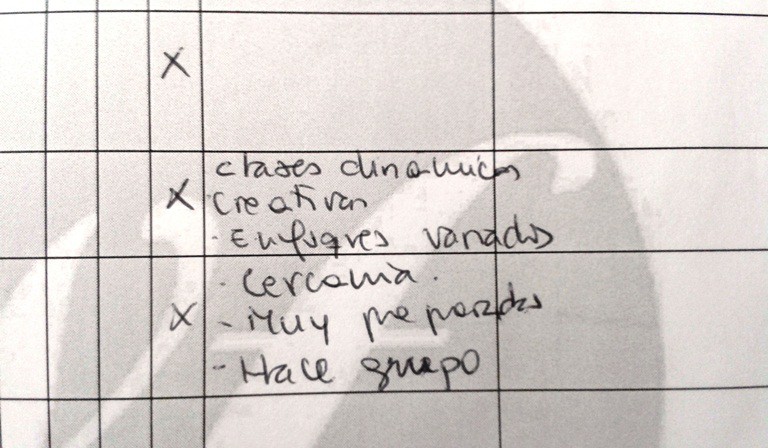 X
clases dinamicas
X creativas
- Enfoques variados
- Cercanía.
X - Muy preparados
- Hace grupo